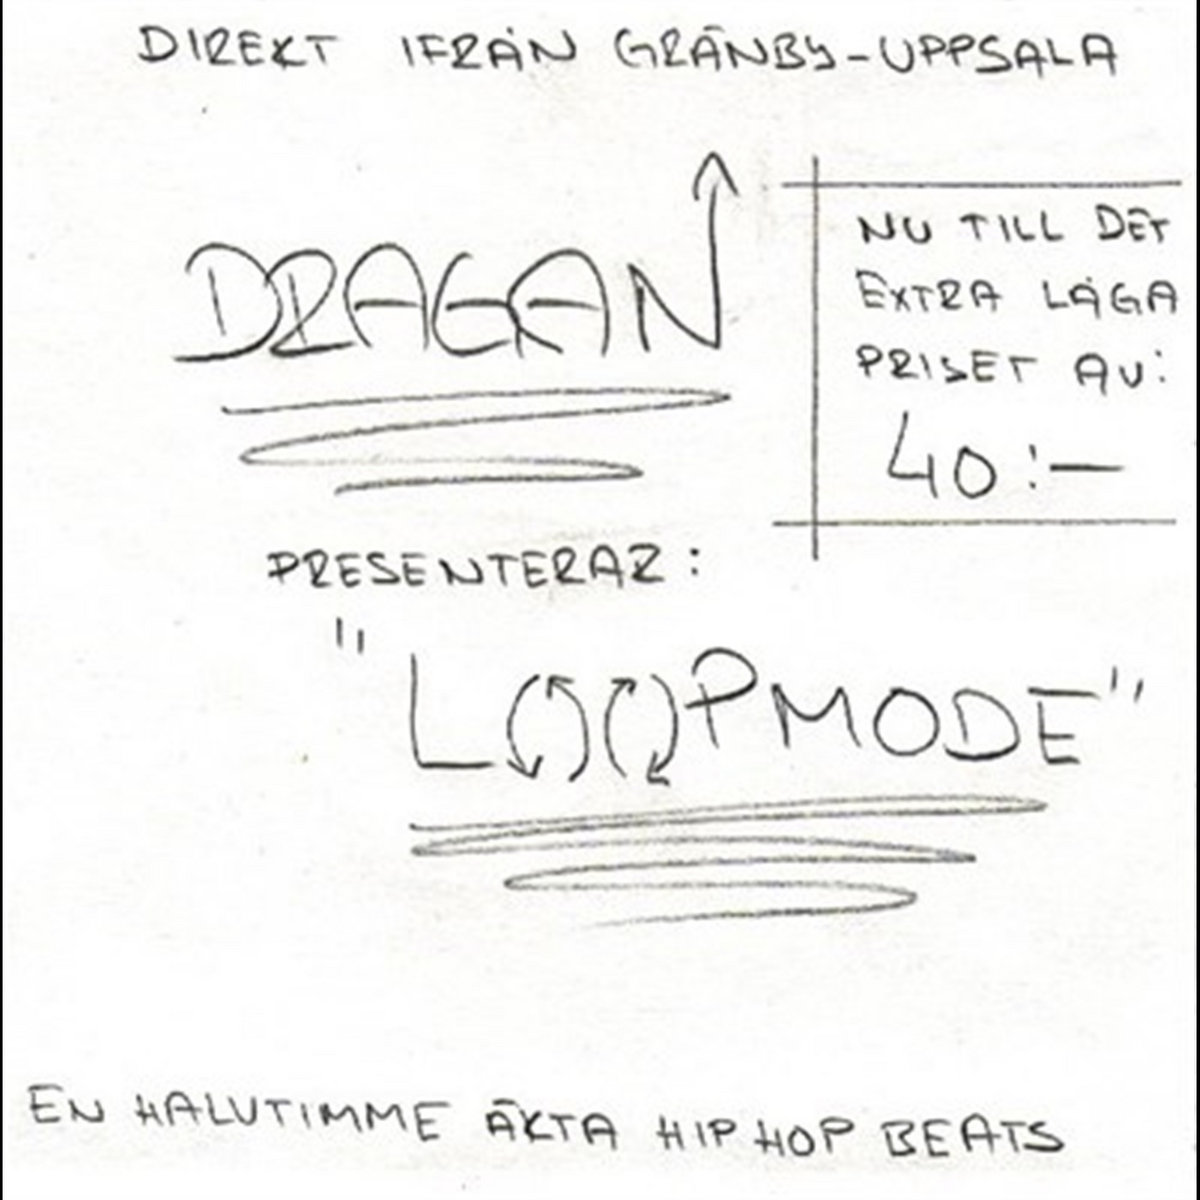 DIREKT IFRÅN GRÄNBY-UPPSALA
DRAGAN
NU TILL DET
EXTRA LÅGA
PRISET AV:
40:-
PRESENTERAZ:
"LOOPMODE"
EN HALVTIMME ÄKTA HIPHOP BEATS